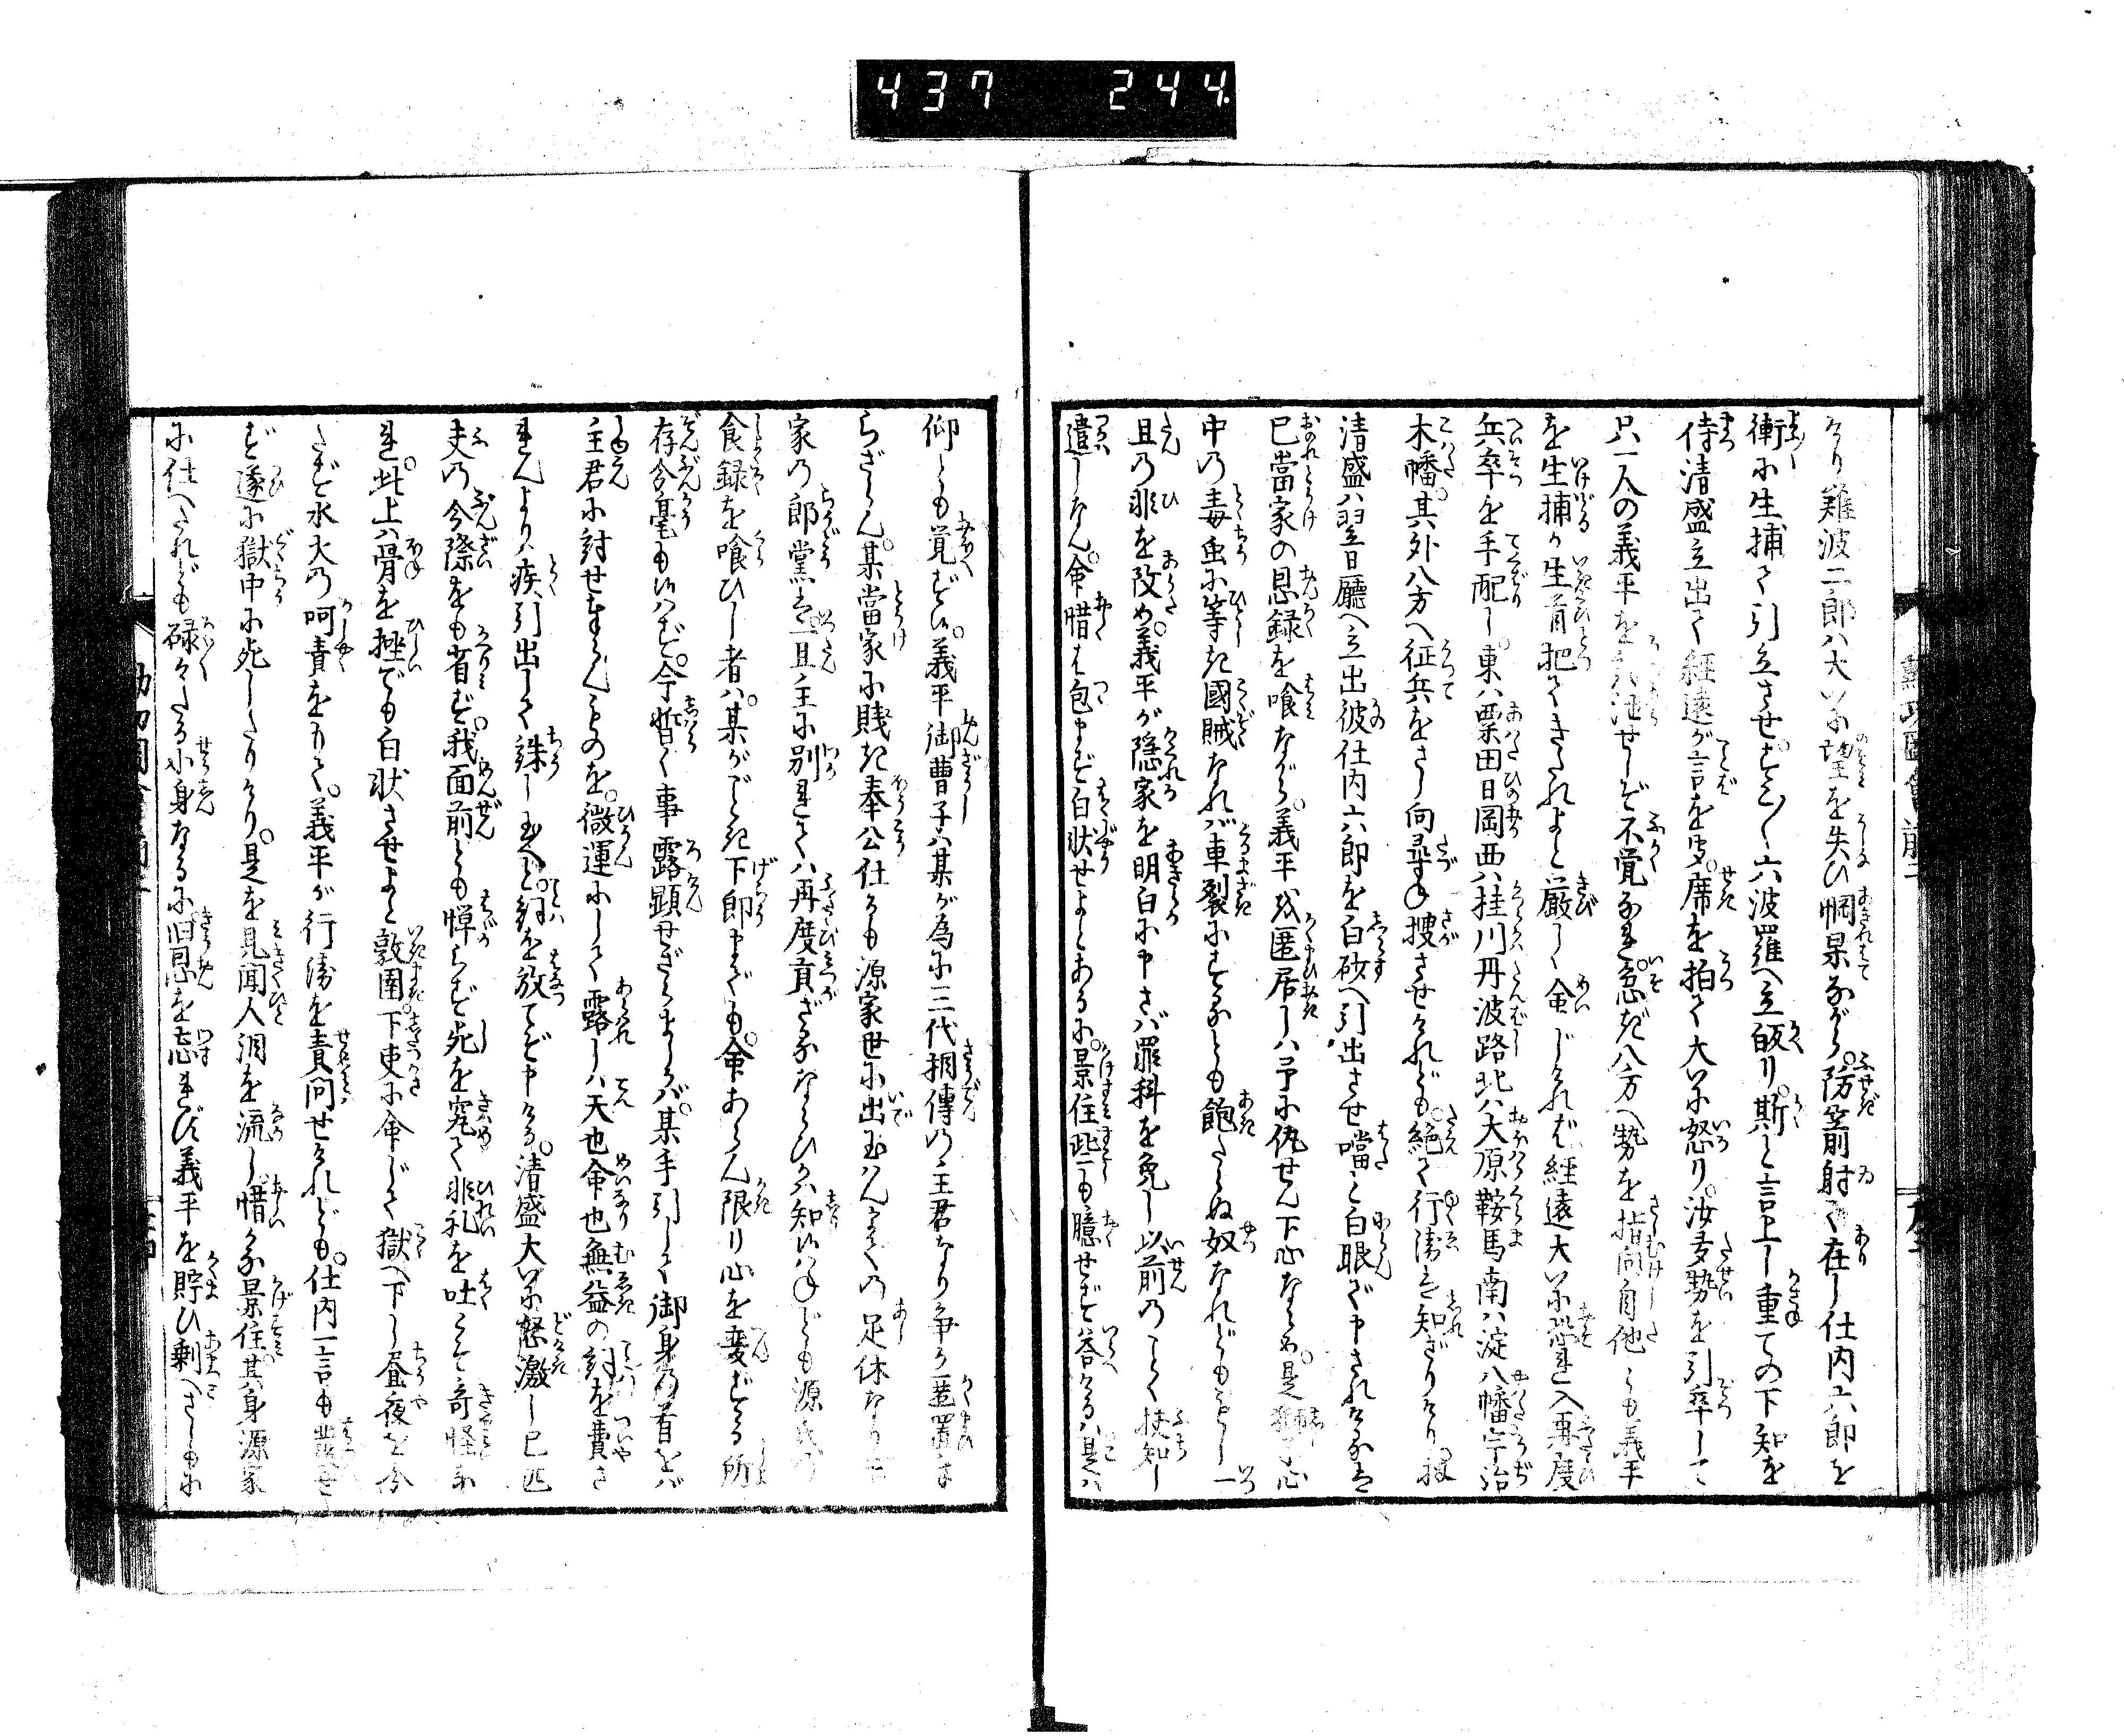 437 244
けり難波二郎ハ大いに望を失ひ惘果ながら防箭射て在し仕内六郎を
衛に生捕て引立させすご〳〵六波羅へ立皈り斯と言上し重ての下知を
侍清盛立出て経遠が言を聞席を拍て大いに怒り汝多勢を引率して
只一人の義平を泄せしぞ不覚なれ急ぎ八方へ勢を指向自他とも義平
を生捕か生首把てきたれよと厳しく命じければ経遠大いに恐れ入再度
兵卒を手配し東ハ栗田日岡西ハ桂川丹波路北ハ大原鞍馬南ハ淀八幡宇治
木幡其外八方へ征兵をさし向尋ね捜させけれども絶て行衛ハ知ざりけり
清盛ハ翌日廳へ立出彼仕内六郎を白砂へ引出させ噹と白眼で申されけるは
已當家の恩録を喰ながら義平を匿居しハ予に仇せん下心ならめ是獅子心
中の毒虫に等き國賊なれバ車裂にするとも飽たらぬ奴なれどももし一
且の非を改め義平が隠家を明白に申さバ罪科を免し以前のごとく扶知し
遣しなん命惜は包まず白状せよとあるに景住些も臆せず答けるハ是ハ
仰とも覚ず候義平御曹子ハ某が為に三代相傳の主君なり争か匿置まゐ
らざらん某當家に賎き奉公仕るも源家世に出玉はんまでの足休なり
家の郎黨ハ一旦主に別れてハ再度貢ざるならひかハ知候ハねども源氏の
食録を喰ひし者ハ某がごとき下郎までも命あらん限り心を変ずる所
存分毫も候ハず今暫く事露顕せざらましかバ某手引して御身の首をバ
主君に討せまゐらんものを微運にして露れしハ天也命也無益の詞を費さ
れんよりハ疾引出して誅し玉へと詞を放てぞ申ける清盛大いに怒激し已匹
夫の分際をも省ず我面前とも憚らず死を究て非礼を吐こそ奇怪な
れ此上ハ骨を挫でも白状させよと敦圉下吏に命じて獄へ下し昼夜を分
たず水火の呵責をもて義平が行衛を責問せけれども仕内一言も発せ
ず遂に獄中に死したりけり是を見聞人泪を流し惜かな景住其身源家
に仕へたれども碌々たる小身なるに旧恩を忘れず義平を貯ひ剰へさしもに